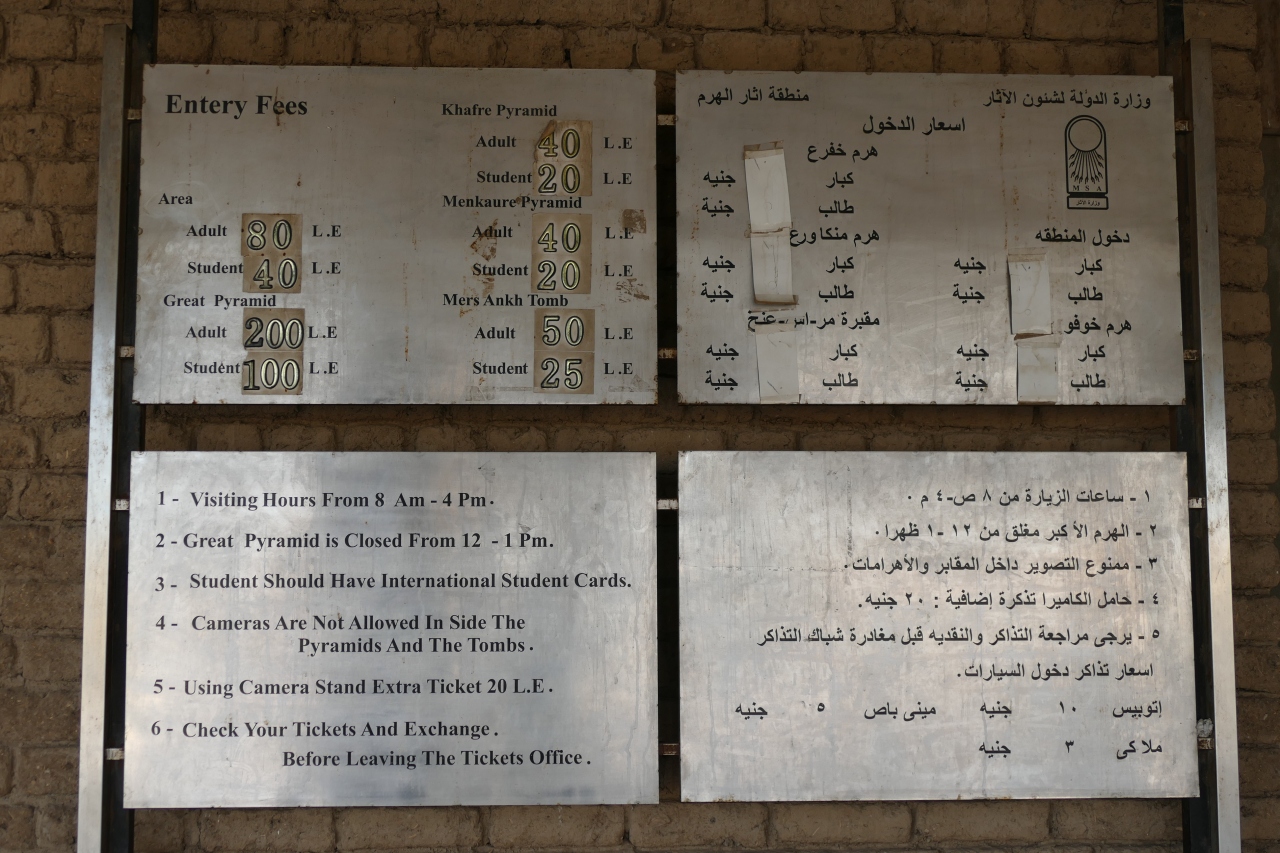 Entery Fees
Area
Adult 80 L.E
Student 40 L.E
Great Pyramid
Adult 200 L.E
Student 100 L.E
Khafre Pyramid
Adult 40 L.E
Student 20 L.E
Menkaure Pyramid
Adult 40 L.E
Student 20 L.E
Mers Ankh Tomb
Adult 50 L.E
Student 25 L.E
وزارة الدولة لشئون الآثار
منطقة اثار الهرم
اسعار الدخول
M S A
وزارة الآثار
دخول المنطقه
كبار جنيه
طالب جنية
هرم خوفو
كبار جنيه
طالب جنية
هرم خفرع
كبار جنيه
طالب جنية
هرم منكاورع
كبار جنيه
طالب جنية
مقبرة مر-اس-عنخ
كبار جنيه
طالب جنية
1 - Visiting Hours From 8 Am - 4 Pm.
2 - Great Pyramid is Closed From 12 - 1 Pm.
3 - Student Should Have International Student Cards.
4 - Cameras Are Not Allowed In Side The
Pyramids And The Tombs.
5 - Using Camera Stand Extra Ticket 20 L.E.
6 - Check Your Tickets And Exchange.
Before Leaving The Tickets Office.
١ - ساعات الزيارة من ٨ ص-٤ م .
٢ - الهرم الأكبر مغلق من ١٢ -١ ظهرا.
٣ - ممنوع التصوير داخل المقابر والأهرامات.
٤ - حامل الكاميرا تذكرة إضافية : ٢٠ جنيه.
٥ - يرجى مراجعة التذاكر والنقديه قبل مغادرة شباك التذاكر
اسعار تذاكر دخول السيارات.
إتوبيس ١٠ جنيه مينى باص ٥ جنيه
ملاكى ٣ جنيه